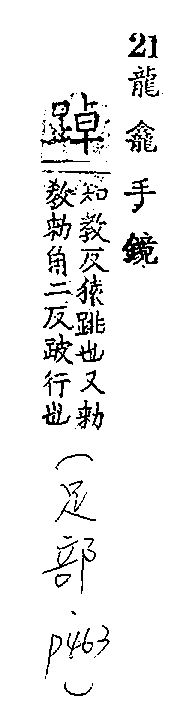 21龍龕手鏡
踔
知教反猿跳也又勅
教勅角二反跛行也
(足部.p463)